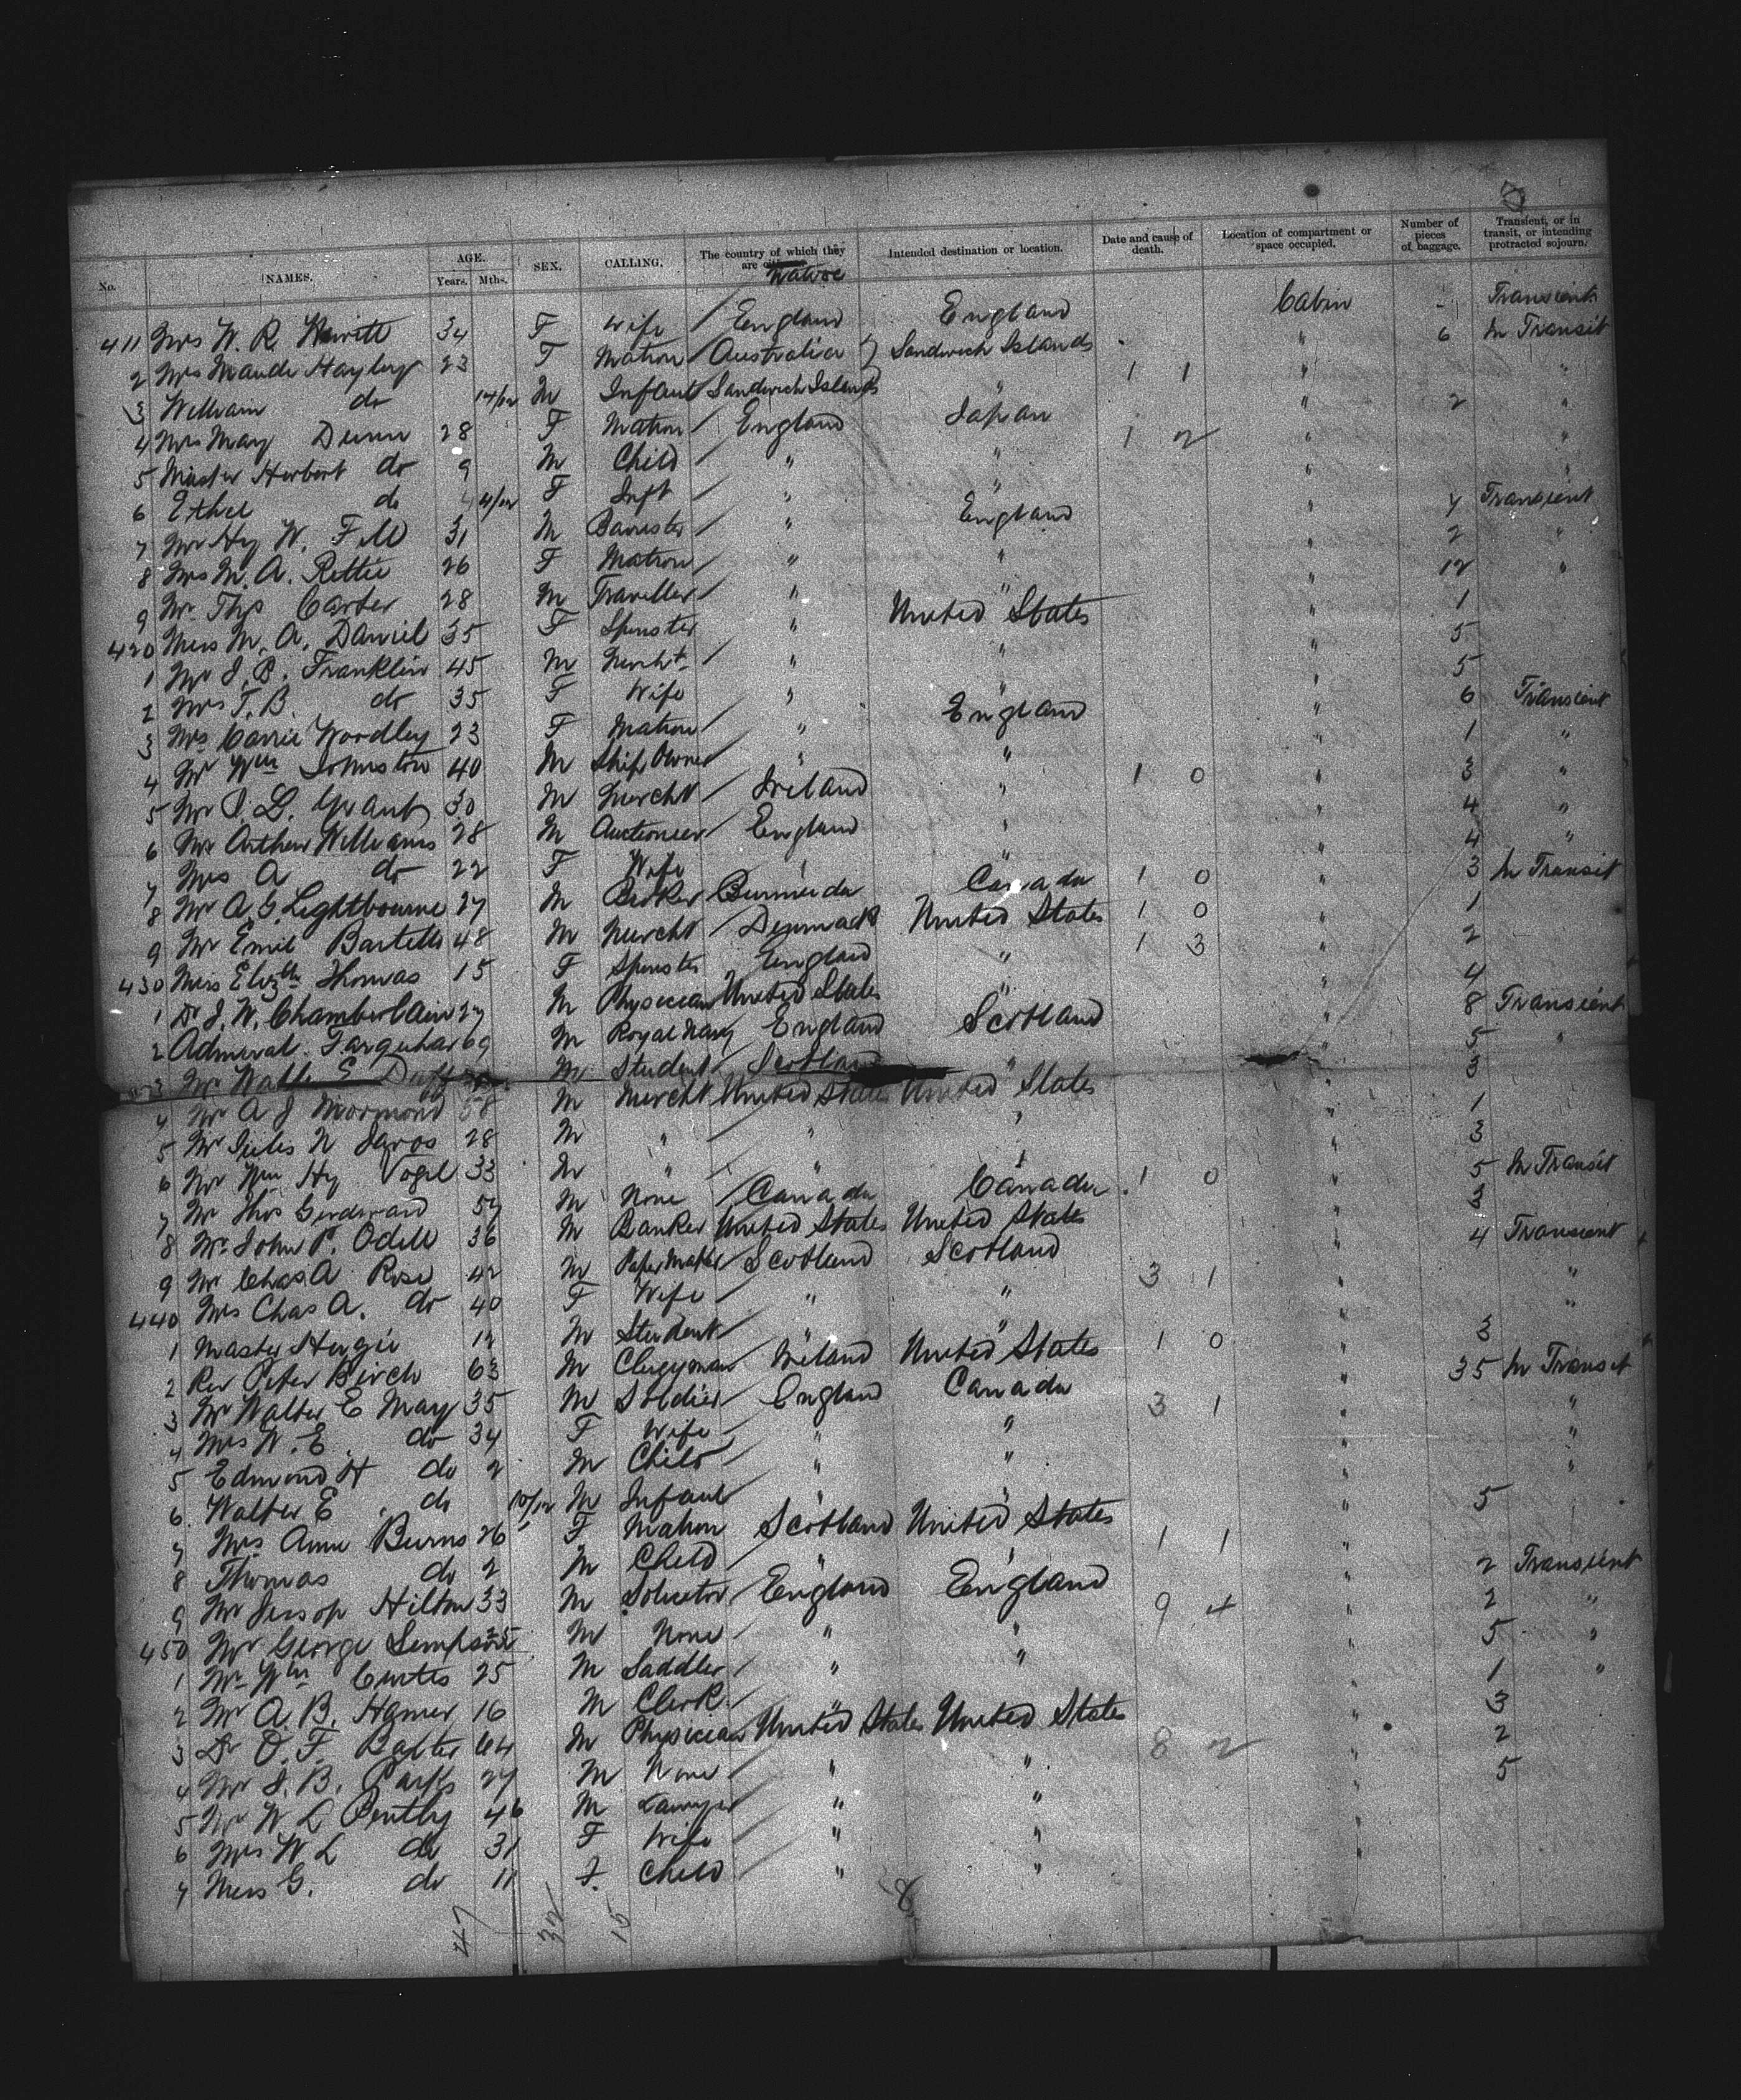 3
No. NAMES. AGE. Years. Mths. SEX. CALLING. The country of which they are citizens Native Intended destination or location. Date and cause of death. Location of compartment or space occupied. Number of pieces of baggage. Transient, or in transit, or intending protracted sojourn.
411 Mrs W. R. Hewitt 34 F Wife England England Cabin - Transient
2 Mrs Maude Hayley 23 F Matron Australia Sandwich Islands 6 In Transit
3 William do 14/12 M Infant Sandwich Islands " 1 1 " "
4 Mrs Mary Dunn 28 F Matron England Japan " 2 "
5 Master Herbert do 9 M Child " " 1 2 " "
6 Ethel do 4/12 F Inft " " " "
7 Mr Hy W. Fell 31 M Barrister " England " 4 Transient
8 Mrs M. A. Rettie 26 F Matron " " " 2 "
9 Mr Thos Carter 28 M Traveller " " " 12 "
420 Miss M. A. Daniel 35 F Spinster " United States " 1
1 Mr J. B. Franklin 45 M Mercht " " " 5
2 Mrs J. B. do 35 F Wife " " " 5
3 Mrs Carrie Woodley 23 F Matron " England " 6 Transient
4 Mr Wm Johnston 40 M Ship Owner " " " 1 "
5 Mr J. L. Grant 30 M Mercht Ireland " 1 0 " 3 "
6 Mr Arthur Williams 28 M Auctioneer England " " 4 "
7 Mrs A do 22 F Wife " " " 4 "
8 Mr A. G. Lightbourne 27 M Broker Bermuda Canada 1 0 " 3 In Transit
9 Mr Emil Bartells 48 M Mercht Denmark United States 1 0 " 1
430 Miss Elizbth Thomas 15 F Spinster England " 1 3 " 2
1 Dr J. W. Chamberlain 27 M Physician United States " " 4
2 Admiral Farquhar 69 M Royal Navy England Scotland " 8 Transient
3 Mr Walter E Duff M Student Scotland " " 5 "
4 Mr A J Mormond 58 M Mercht United States United States " 3
5 Mr Jules N Jaros 28 M " " " " 1
6 Mr Wm Hy Vogel 33 M " " " " 3
7 Mr Thos 57 M None Canada Canada 1 0 " 5 In Transit
8 Mr John P. Odell 36 M Banker United States United States " 3
9 Mr Chas A Rose 42 M Paper Maker Scotland Scotland " 4 Transient
440 Mrs Chas A. do 40 F Wife " " 3 1 " "
1 Master Hugie 12 M Student " " " "
2 Rev Peter Birch 63 M Clergyman Ireland United States 1 0 " 3
3 Mr Walter E May 35 M Soldier England Canada " 35 In Transit
4 Mrs W. E. do 34 F Wife " " 3 1 " "
5 Edmond H do 2 M Child " " " "
6 Walter E do 10/12 M Infant " " " "
7 Mrs Annie Burns 26 F Matron Scotland United States " 5
8 Thomas do 2 M Child " " 1 1 "
9 Mr Jessop Hilton 33 M Solicitor England England " 2 Transient
450 Mr George Simpson 25 M None " " 9 4 " 2 "
1 Mr Wm Curtis 25 M Saddler " " " 5 "
2 Mr A. B. Hamer 16 M Clerk " " 1 "
3 Dr O. F. Baxter 64 M Physician United States United States " 3
4 Mr J. B. Parks 27 M None " " 8 2 " 2
5 Mr W L Bentley 46 M Lawyer " " " 5
6 Mrs W L do 31 F Wife " " "
7 Miss G. do 11 F. Child " "
47 32 15 8